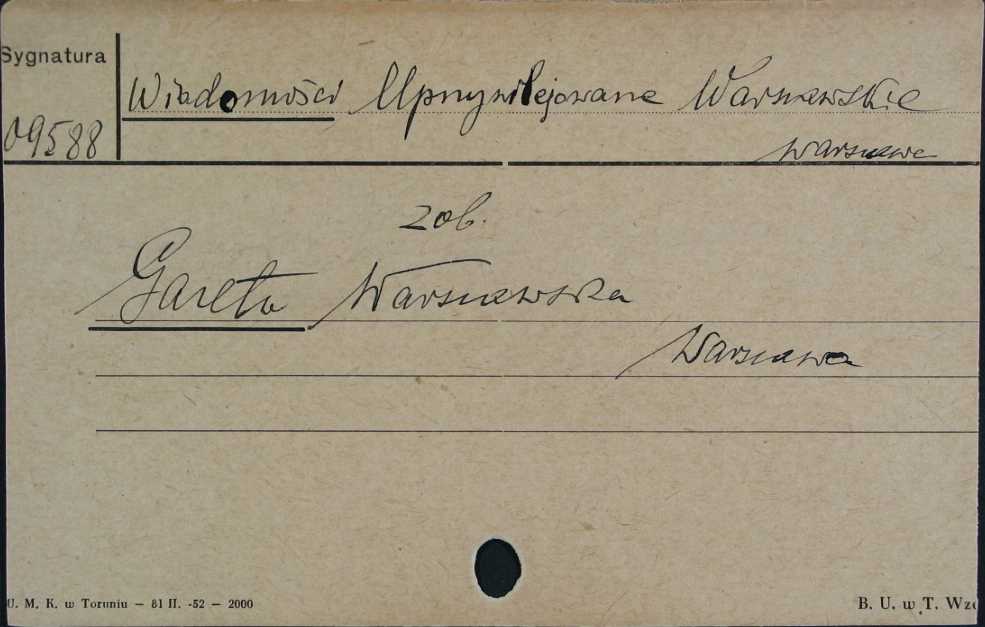 Sygnatura
Wiadomości Uprzywilejowane Warszawskie
09588
Warszawa
zob.
Gazeta Warszawska
Warszawa
U. M. K. w Toruniu — 81 II. -52 — 2000
B. U. w T. Wzó